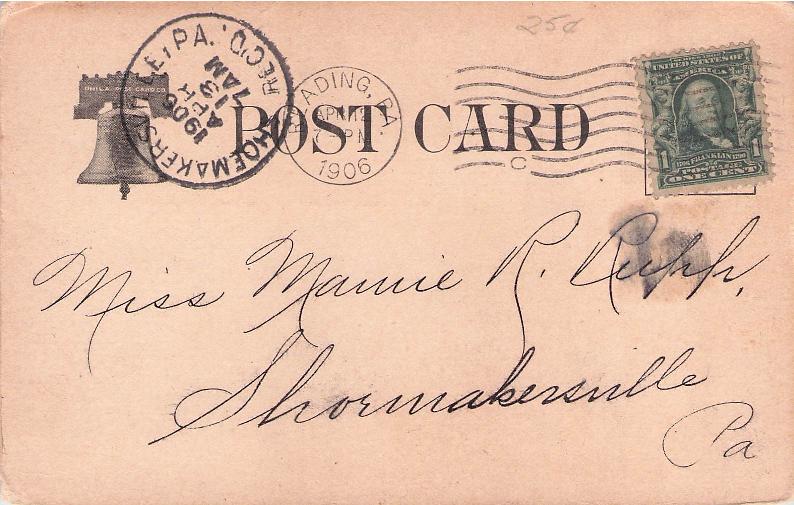 25¢
PHILA. POST CARD CO.
SHOEMAKERSVILLE, PA.
1906
APR
13
7 AM
REC'D.
READING, PA.
APR 12
7 PM
1906
POST CARD
C
UNITED STATES OF
AMERICA
1 1706 FRANKLIN 1790 1
POSTAGE
ONE CENT
Miss Mamie R. Rupp,
Shoemakersville
Pa